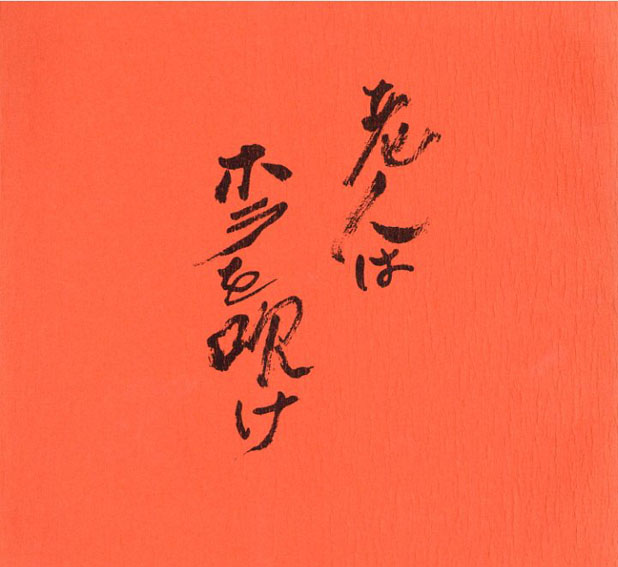 老人は
ホラを吹け